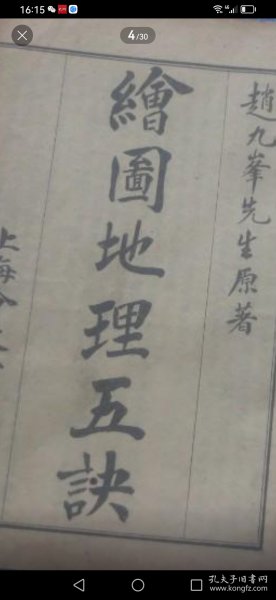 16:15
4/30
趙九峯先生原著
繪圖地理五訣
上海
孔夫子旧书网
www.kongfz.com